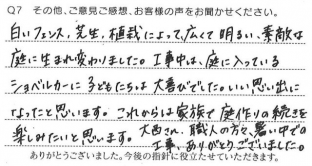 Q7 その他、ご意見ご感想、お客様の声をお聞かせください。
白いフェンス、芝生、植栽によって、広くて明るい、素敵な
庭に生まれ変わりました。工事中は、庭に入っている
ショベルカーに子どもたちは大喜びでした。いい思い出に
なったと思います。これからは家族で庭作りの続きを
楽しみたいと思います。大西さん、職人の方々、暑い中での
工事、ありがとうございました。
ありがとうございました。今後の指針に役立たせていただきます。